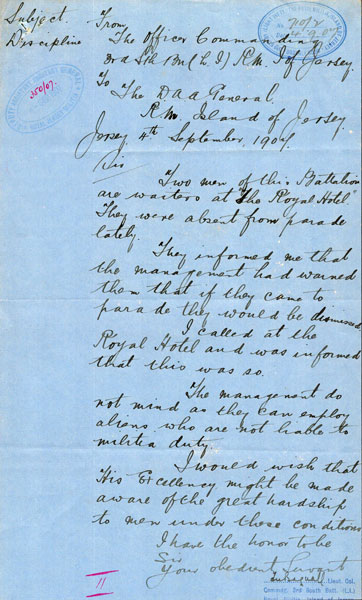 Subject.
Discipline
From
The Officer Commanding
3rd Sth Bn (L I) R.M. I of Jersey.
To
The D A A General.
R.M. Island of Jersey
Jersey 4th September, 1907.
Sir
Two men of this Battalion
are waiters at "The Royal Hotel"
They were absent from parade
lately.
They informed me that
the management had warned
them that if they came to
parade they would be dismissed
I called at the
Royal Hotel and was informed
that this was so.
The management do
not mind as they can employ
aliens who are not liable to
militia duty.
I would wish that
His Excellency might be made
aware of the great hardship
to men under these conditions
I have the honor to be
Sir
Your obedient Servant
Lieut. Col.
Commdg. 3rd South Batt. (L.I.)
350/07.
11